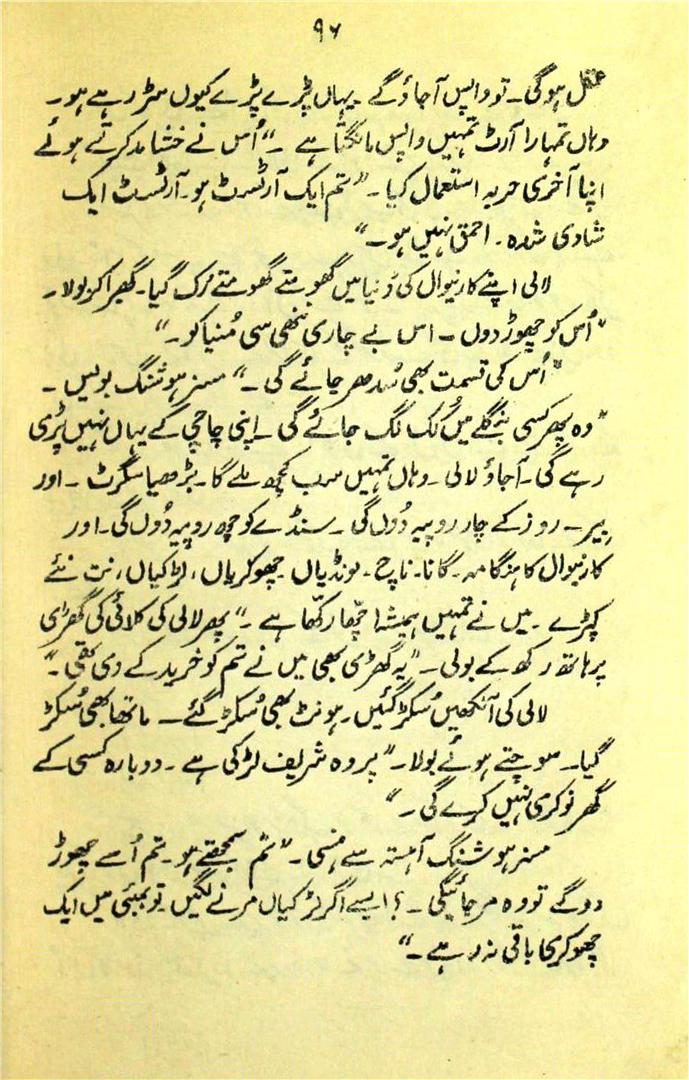 ۹۶
عقل ہوگی۔ تو واپس آجاؤ گے۔ یہاں پڑے پڑے کیوں سڑ رہے ہو۔
وہاں تمہارا آرٹ تمہیں واپس مانگتا ہے ۔" اُس نے خشامد کرتے ہوئے
اپنا آخری حربہ استعمال کیا۔ "تم ایک آرٹسٹ ہو۔ آرٹسٹ ایک
شادی شدہ۔ احمق نہیں ہو۔"
لالی اپنے کارنیوال کی دُنیا میں گھومتے گھومتے رُک گیا۔ گھبرا کر بولا۔
"اُس کو چھوڑ دوں ۔ اس بے چاری ننھی سی مُنیا کو۔"
"اُس کی قسمت بھی سُدھر جائے گی ۔" مسز ہوشنگ بولیں ۔
"وہ پھر کسی بنگلے میں کُک لگ جائے گی ۔ اپنی چاچی کے یہاں نہیں پڑی
رہے گی۔ آجاؤ لالی ۔ وہاں تمہیں سب کچھ ملے گا۔ بڑھیا سگرٹ ۔ اور
بیر۔ روز کے چار روپیہ دُوں گی ۔ سنڈے کو چھ روپیہ دُوں گی۔ اور
کارنیوال کا ہنگامہ۔ گانا۔ ناچ۔ لونڈیاں۔ چھوکریاں، لڑکیاں، نت نئے
کپڑے ۔ میں نے تمہیں ہمیشہ اچھا رکھّا ہے ۔" پھر لالی کی کلائی کی گھڑی
پر ہاتھ رکھ کے بولی ۔ "یہ گھڑی بھی میں نے تم کو خرید کے دی تھی ۔"
لالی کی آنکھیں سُکڑ گئیں۔ ہونٹ بھی سُکڑ گئے ۔ ماتھا بھی سُکڑ
گیا۔ سوچتے ہوئے بولا۔ "پر وہ شریف لڑکی ہے ۔ دوبارہ کسی کے
گھر نوکری نہیں کرے گی ۔"
مسز ہوشنگ آہستہ سے ہنسی ۔ "تم سمجھتے ہو۔ تم اُسے چھوڑ
دو گے تو وہ مر جائیگی ۔ ؟ ایسے اگر لڑکیاں مرنے لگیں تو بمبئی میں ایک
چھوکری باقی نہ رہے ۔"